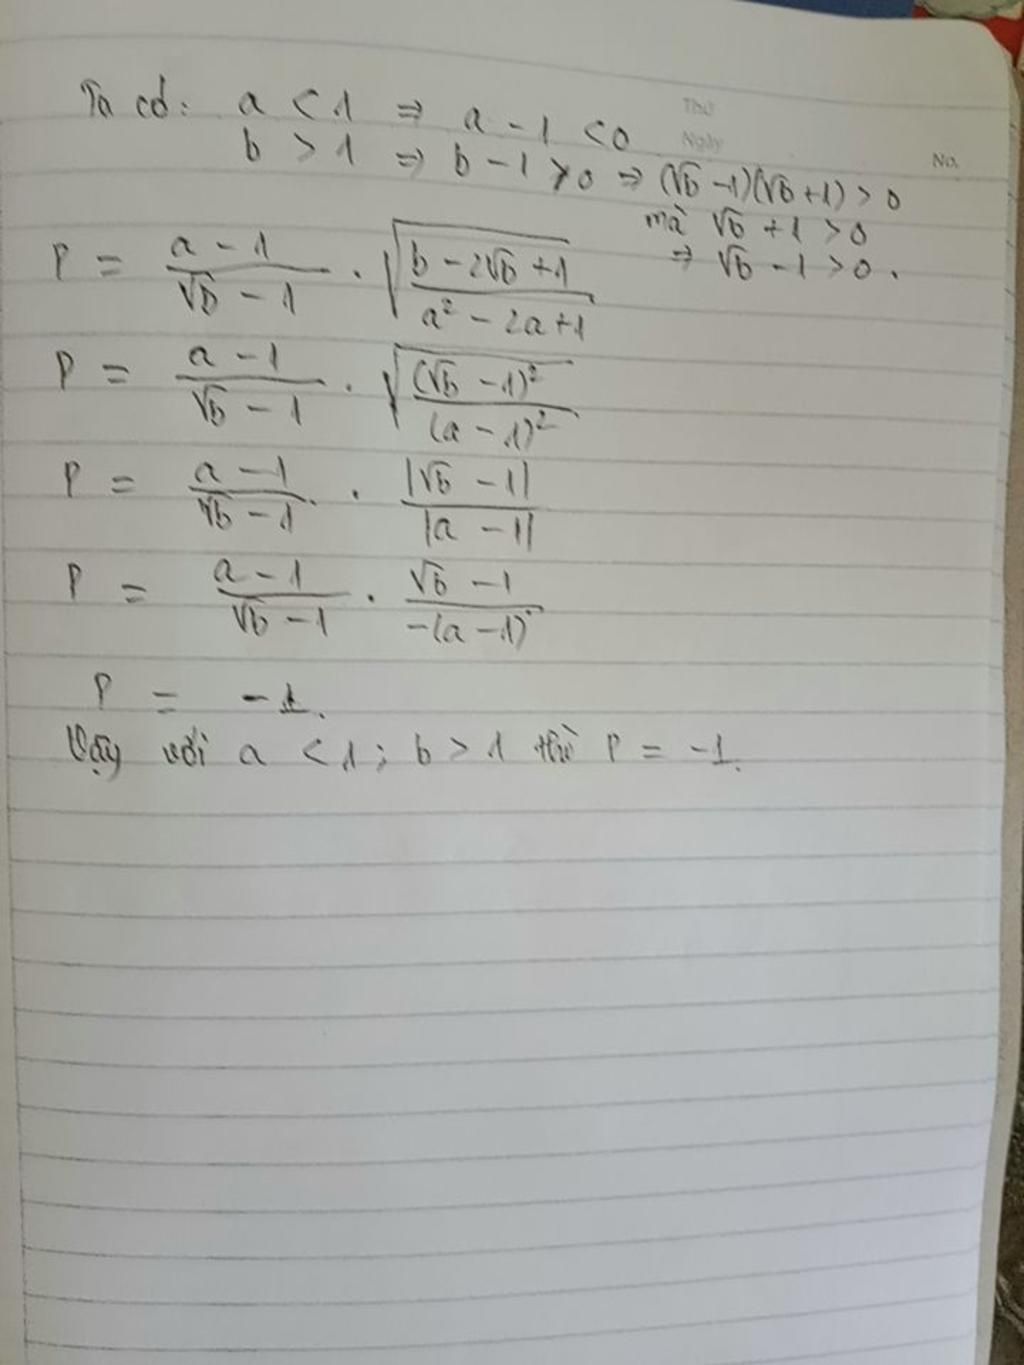 Ta có: a < 1 ⇒ a - 1 < 0
Thứ
Ngày
No.
b > 1 ⇒ b - 1 > 0 ⇒ (√b - 1)(√b + 1) > 0
mà √b + 1 > 0
⇒ √b - 1 > 0.
P = (a - 1)/(√b - 1) . √((b - 2√b + 1)/(a² - 2a + 1))
P = (a - 1)/(√b - 1) . √((√b - 1)²/(a - 1)²)
P = (a - 1)/(√b - 1) . |√b - 1|/|a - 1|
P = (a - 1)/(√b - 1) . (√b - 1)/(-(a - 1))
P = -1.
Vậy với a < 1; b > 1 thì P = -1.